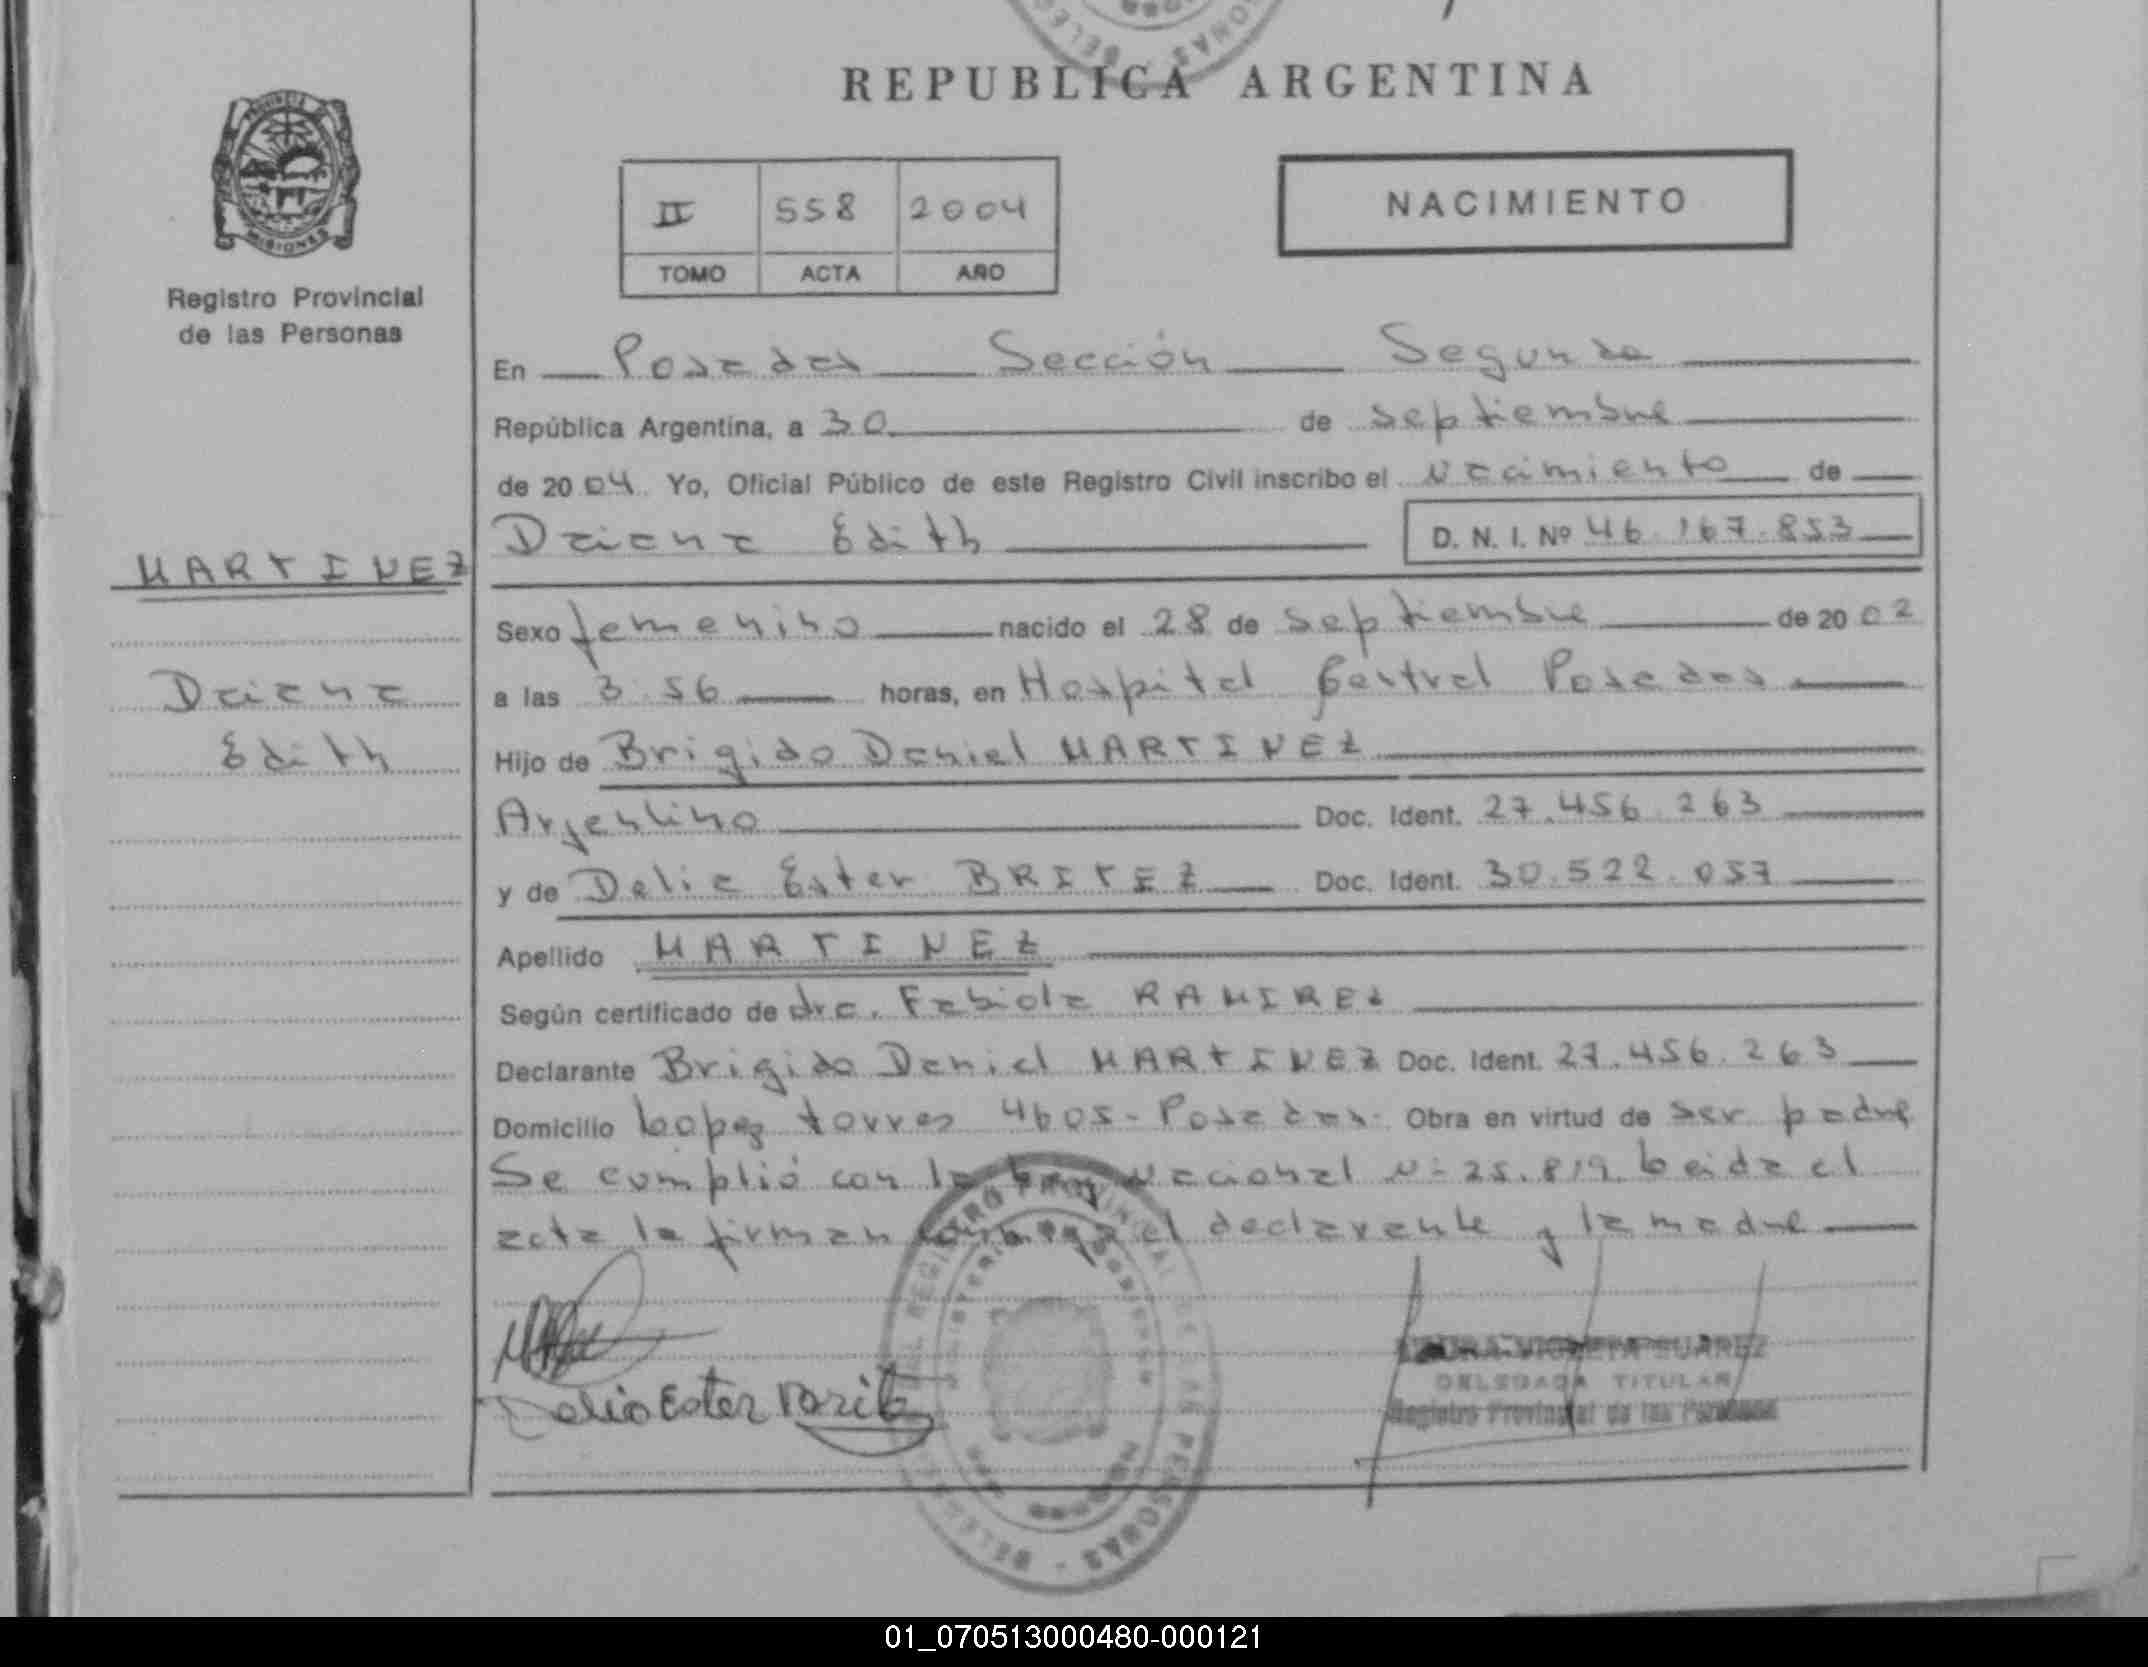 REPUBLICA ARGENTINA
PROVINCIA DE
MISIONES
Registro Provincial
de las Personas
II 558 2004
TOMO ACTA AÑO
NACIMIENTO
En Posadas Sección Segunda
República Argentina, a 30 de septiembre
de 2004 Yo, Oficial Público de este Registro Civil inscribo el nacimiento de
Daiana Edith D. N. I. Nº 46.167.853
MARTINEZ
Sexo femenino nacido el 28 de septiembre de 2002
Daiana
Edith
a las 3:56 horas, en Hospital Central Posadas
Hijo de Brigido Daniel MARTINEZ
Argentino Doc. Ident. 27.456.263
y de Delia Ester BRITEZ Doc. Ident. 30.522.057
Apellido MARTINEZ
Según certificado de dra. Fabiola RAMIREZ
Declarante Brigido Daniel MARTINEZ Doc. Ident. 27.456.263
Domicilio Lopez torres 4605 - Posadas. Obra en virtud de ser padre
Se cumplió con la Ley Nacional Nº 25.819. Leida el
acta la firman conmigo el declarante y la madre
Delia Ester Britez
SUAREZ
DELEGADA TITULAR
Registro Provincial de las Personas
DEL REGISTRO PROVINCIAL DE LAS PERSONAS
MINISTERIO DE GOBIERNO
01_070513000480-000121